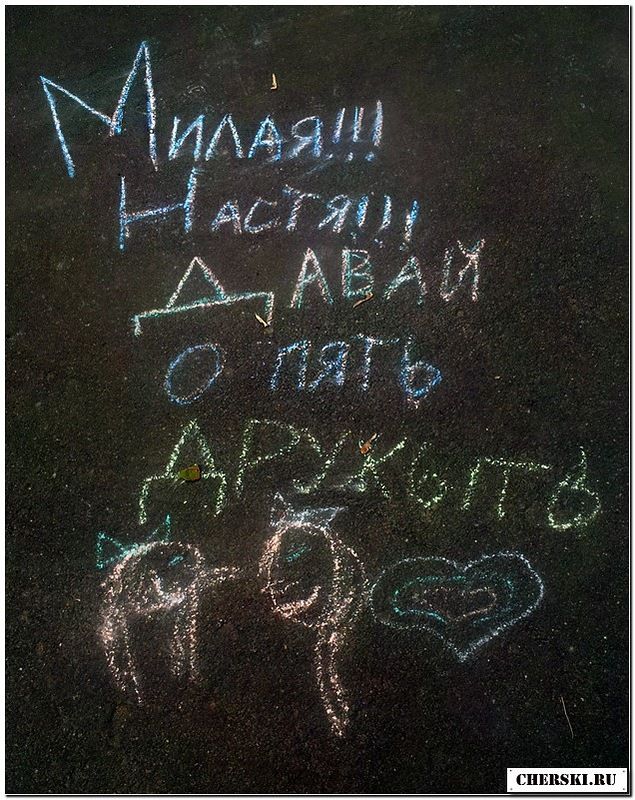 Милая!!!
Настя!!!
Давай
о пять
дружить
CHERSKI.RU